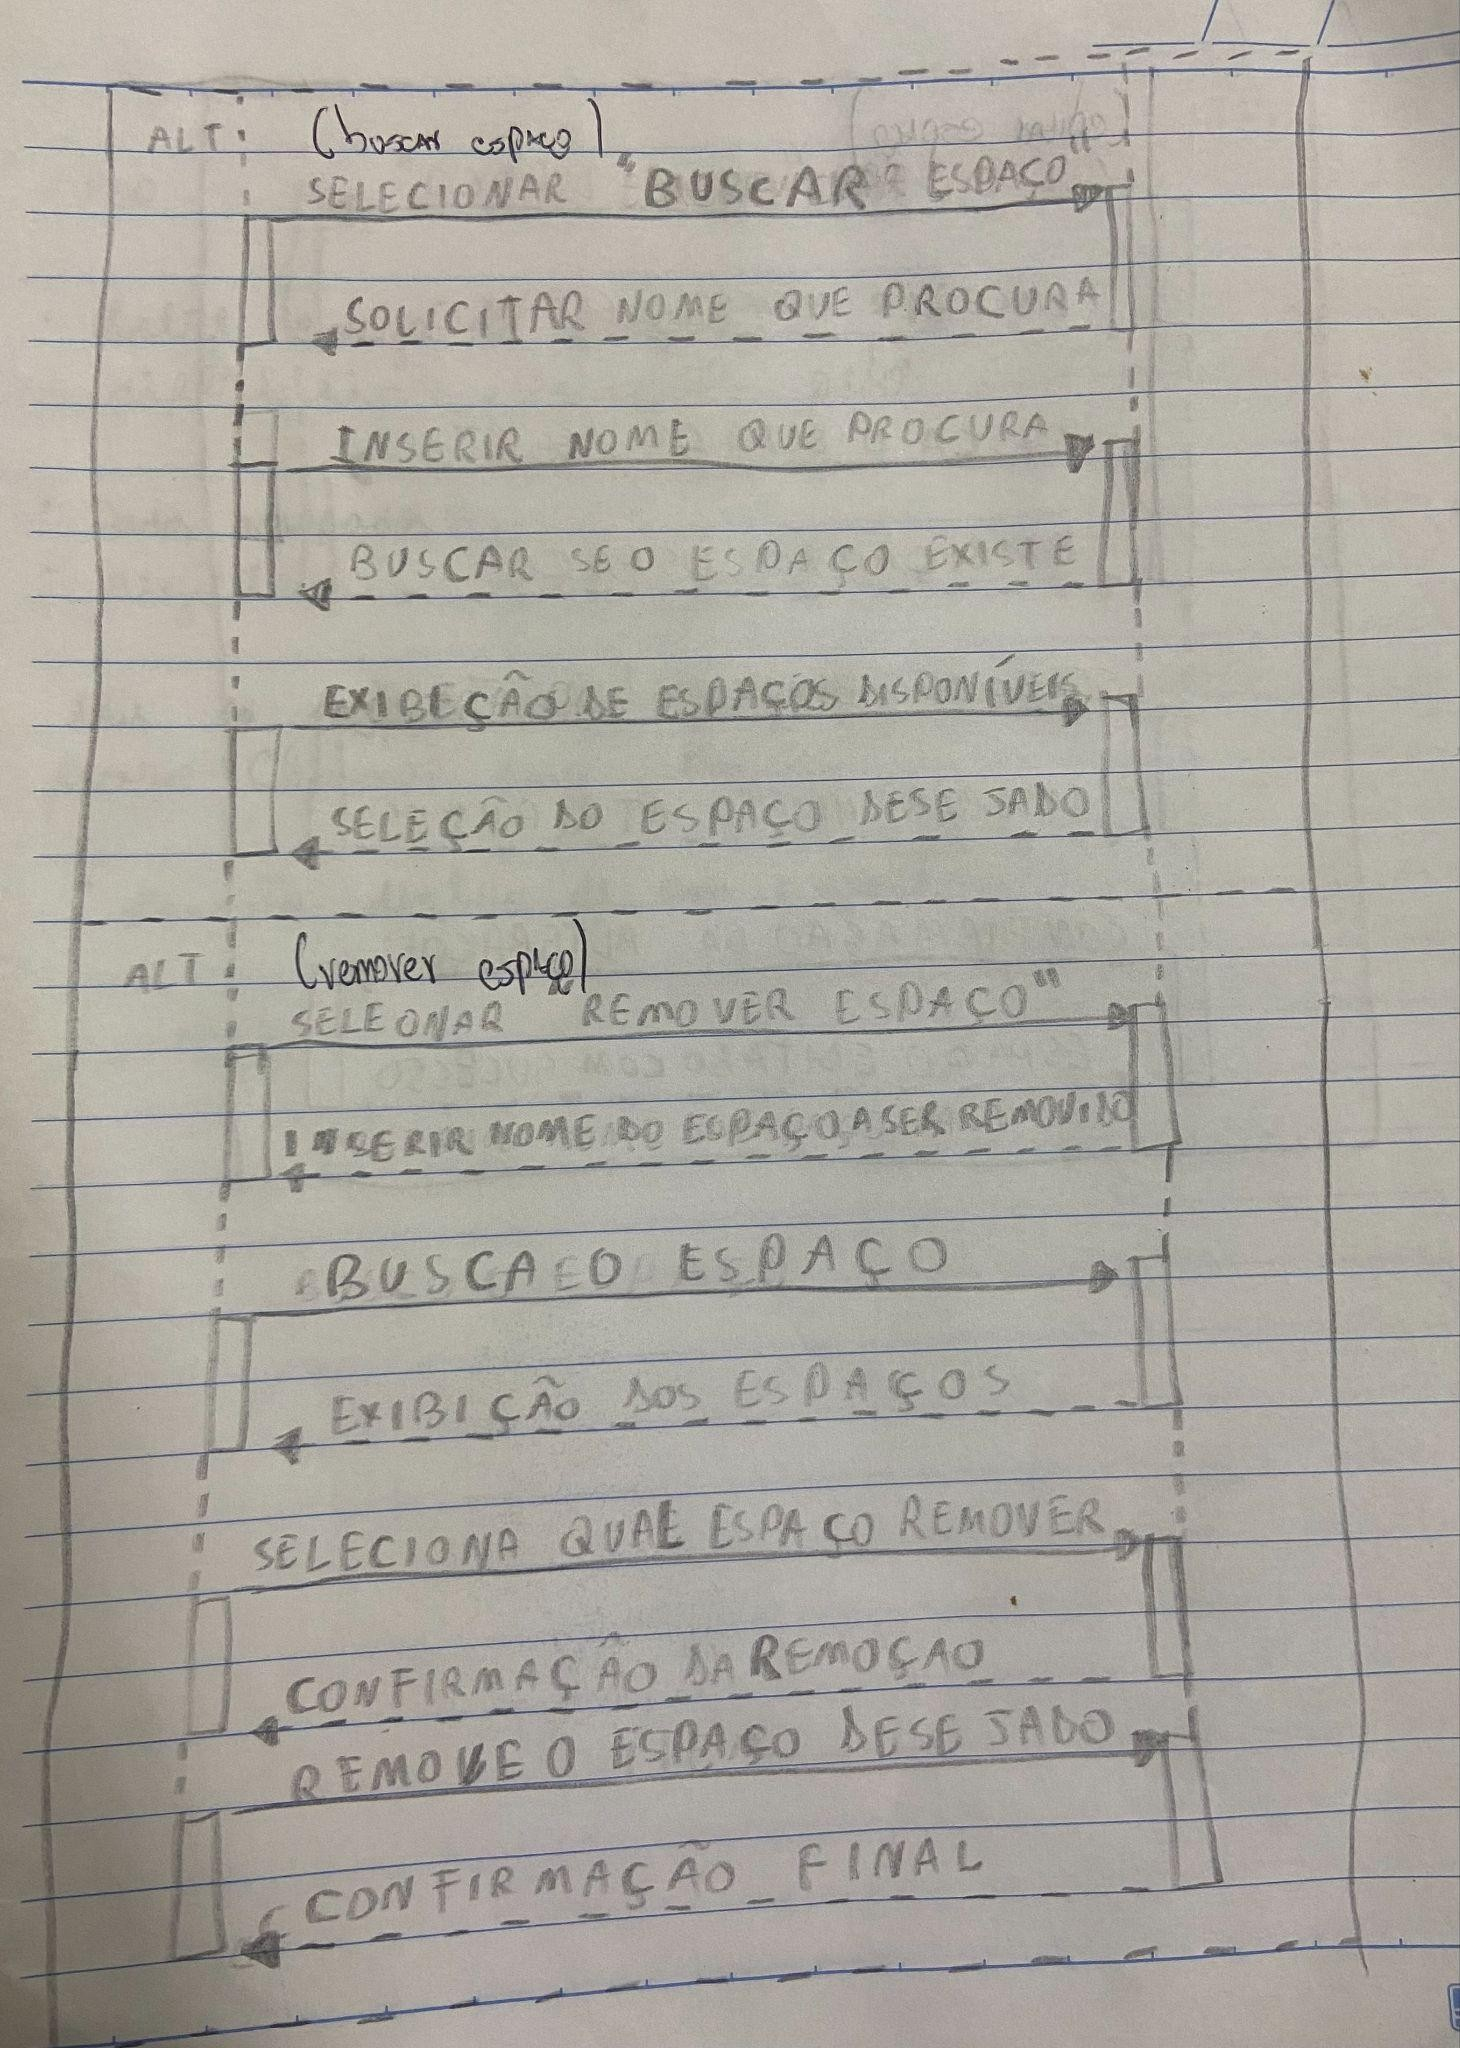 ALT (buscar espaço)
SELECIONAR "BUSCAR ESPAÇO
SOLICITAR NOME QUE PROCURA
INSERIR NOME QUE PROCURA
BUSCAR SE O ESPAÇO EXISTE
EXIBEÇÃO DE ESPAÇOS DISPONÍVEIS
SELEÇÃO DO ESPAÇO DESEJADO
ALT (remover espaço)
SELEONAR "REMOVER ESPAÇO"
INSERIR NOME DO ESPAÇO A SER REMOVIDO
BUSCA O ESPAÇO
EXIBIÇÃO DOS ESPAÇOS
SELECIONA QUAL ESPAÇO REMOVER
CONFIRMAÇÃO DA REMOÇAO
REMOVE O ESPAÇO DESEJADO
CONFIRMAÇÃO FINAL